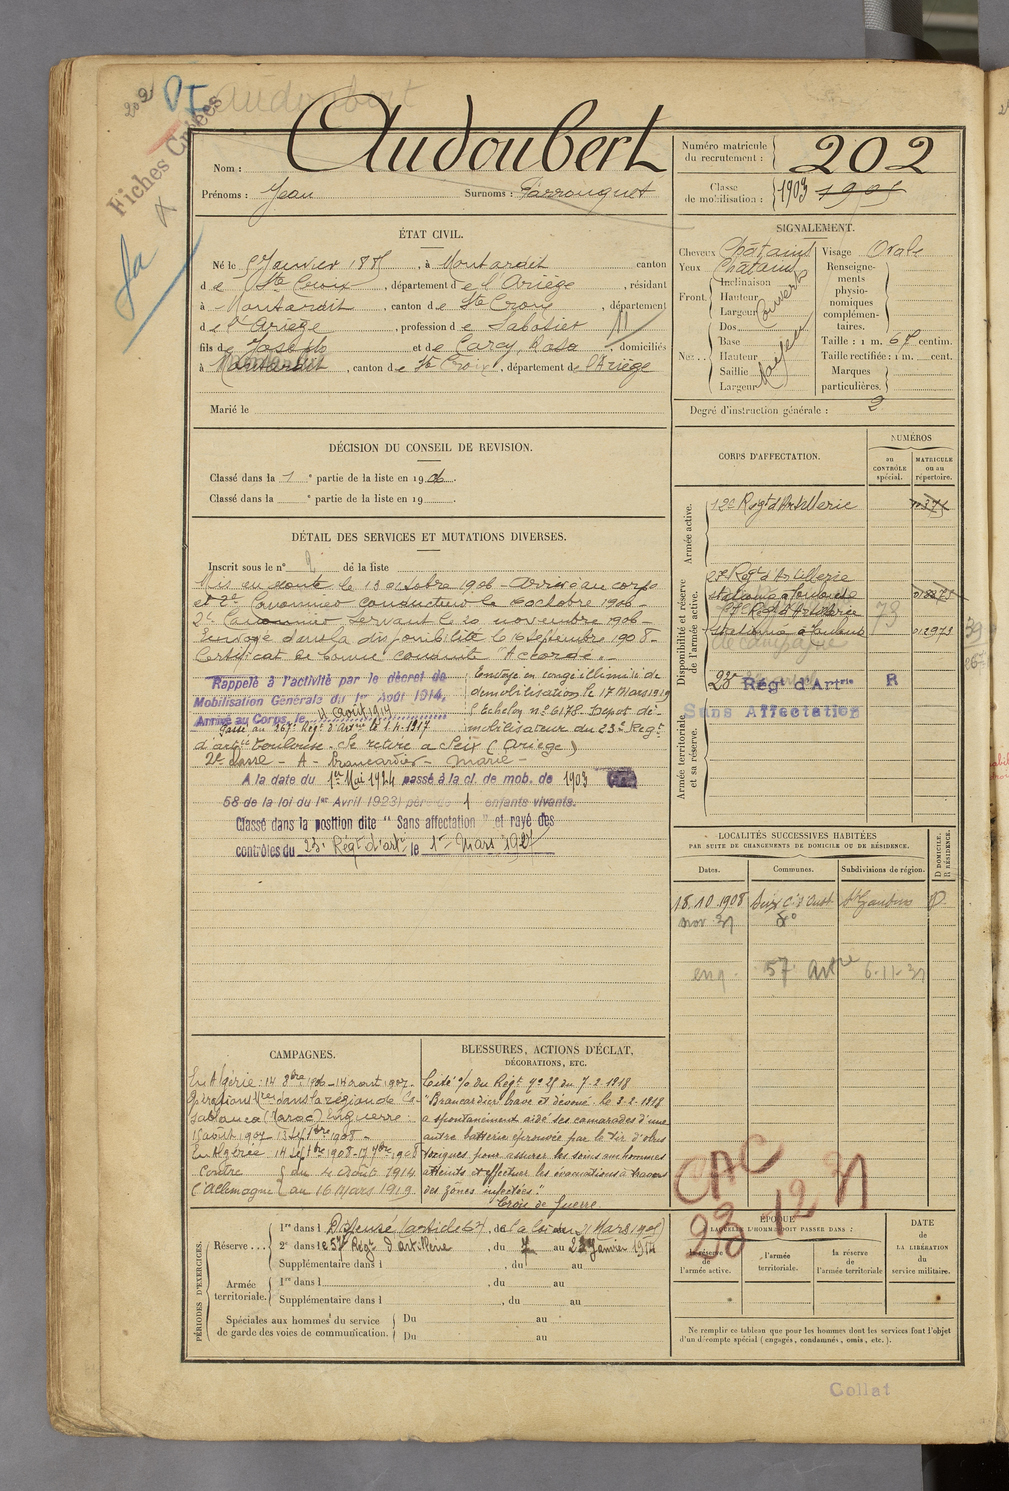 202
Audoubert
Fiches Créées
Nom : Audoubert
Prénoms : Jean Surnoms : Parrouquet
Numéro matricule du recrutement : 202
Classe de mobilisation : 1903 1905
ÉTAT CIVIL.
Né le 5 Janvier 1885, à Montardit canton
de Ste Croix, département de l'Ariège, résidant
à Montardit, canton de Ste Croix, département
de l'Ariège, profession de Sabotier
fils de Joseph et de Carcy, Rosa, domiciliés
à Montardit, canton de Ste Croix, département de l'Ariège
Marié le
SIGNALEMENT.
Cheveux Châtains
Yeux Châtains
Front Inclinaison
Hauteur
Largeur
Couvert
Nez Dos
Base
Hauteur
Saillie
Largeur
Moyen
Visage Ovale
Renseignements physionomiques complémentaires.
Taille : 1 m. 67 centim.
Taille rectifiée : 1 m. cent.
Marques particulières.
Degré d'instruction générale : 2
DÉCISION DU CONSEIL DE REVISION.
Classé dans la 1e partie de la liste en 1906.
Classé dans la e partie de la liste en 19
DÉTAIL DES SERVICES ET MUTATIONS DIVERSES.
Inscrit sous le n° 2 de la liste
Mis en route le 13 octobre 1906 - Arrivé au corps
et 2e Canonnier conducteur le octobre 1906 -
2e Canonnier Servant le 20 novembre 1906 -
Envoyé dans la disponibilité le 16 Septembre 1908 -
Certificat de bonne conduite "Accordé" -
Rappelé à l'activité par le décret de
Mobilisation Générale du 1er Août 1914.
Arrivé au Corps, le 4 Août 1914
Passé au 267e Régt d'Artie le 1.4.1917
Envoyé en congé illimité de
démobilisation le 17 Mars 1919
Echelon n° 6178 Dépôt dé-
mobilisateur du 23e Régt
d'artie Toulouse. Se retire à Seix (Ariège)
2e classe - A - Brancardier - Marié -
A la date du 1er Mai 1924 passé à la cl. de mob. de 1903
58 de la loi du 1er Avril 1923) père de 1 enfants vivants.
Classé dans la position dite " Sans affectation " et rayé des
contrôles du 23e Régt d'artie le 1er Mars 1927
CORPS D'AFFECTATION.
NUMÉROS
au CONTRÔLE spécial.
MATRICULE ou au répertoire.
Armée active.
12e Régt d'Artillerie
Disponibilité et réserve de l'armée active.
Régt d'Artillerie
stationné à Toulouse
57e Régt d'Artillerie 73
stationné à Toulouse 012973
de campagne
23e Régt d'Artrie R
Sans Affectation
Armée territoriale et sa réserve.
LOCALITÉS SUCCESSIVES HABITÉES
PAR SUITE DE CHANGEMENTS DE DOMICILE OU DE RÉSIDENCE.
Dates. Communes. Subdivisions de région. D DOMICILE. R RÉSIDENCE.
18.10.1908 Seix C. d'Oust St Gaudens D.
nov 31 do
enq. 57e Artie 6-11-31
CAMPAGNES.
En Algérie : 14 8bre 1906 - 14 août 1907.
Opérations Mres dans la région de Ca-
sablanca (Maroc) En guerre :
15 août 1907 13 Septbre 1908 -
En Algérie 14 Septbre 1908 - 17 7bre 1908
Contre du 4 août 1914
l'Allemagne au 16 Mars 1919.
BLESSURES, ACTIONS D'ÉCLAT,
DÉCORATIONS, ETC.
Cité o/o du Régt n° 25 du 7-2-1918
"Brancardier brave et dévoué. le 3-2-1918
a spontanément aidé ses camarades d'une
autre batterie éprouvée par le tir d'obus
toxiques pour assurer les soins aux hommes
atteints et effectuer les évacuations à travers
des zônes infectées."
Croix de Guerre
CAC
23-12 31
PÉRIODES D'EXERCICES.
Réserve 1re dans l Dispensé (article 67, de la loi du 21 Mars 1905)
2e dans le 57e Régt d'artillerie, du 7 au 23 Janvier 1914
Supplémentaire dans l , du au
Armée territoriale. 1re dans l , du au
Supplémentaire dans l , du au
Spéciales aux hommes du service Du au
de garde des voies de communication. Du au
ÉPOQUE
À LAQUELLE L'HOMME DOIT PASSER DANS :
la réserve de l'armée active.
l'armée territoriale.
la réserve de l'armée territoriale
DATE de LA LIBÉRATION du service militaire.
Ne remplir ce tableau que pour les hommes dont les services font l'objet
d'un décompte spécial (engagés, condamnés, omis, etc.).
Collat